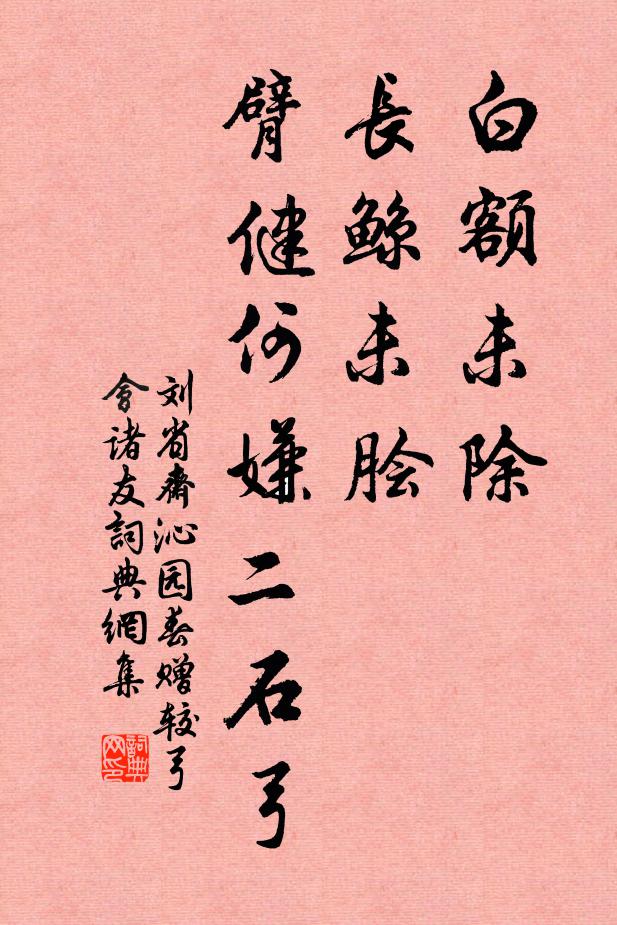 白额未除
長鲸未脍
臂健何嫌二石弓
刘省齋沁园春赠较弓
會诸友詞典網集
詞典网印